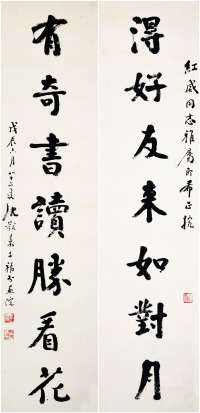 紅咸同志雅屬即希正捥
得好友来如對月
有奇書讀勝看花
戊辰六月八十二叟沈